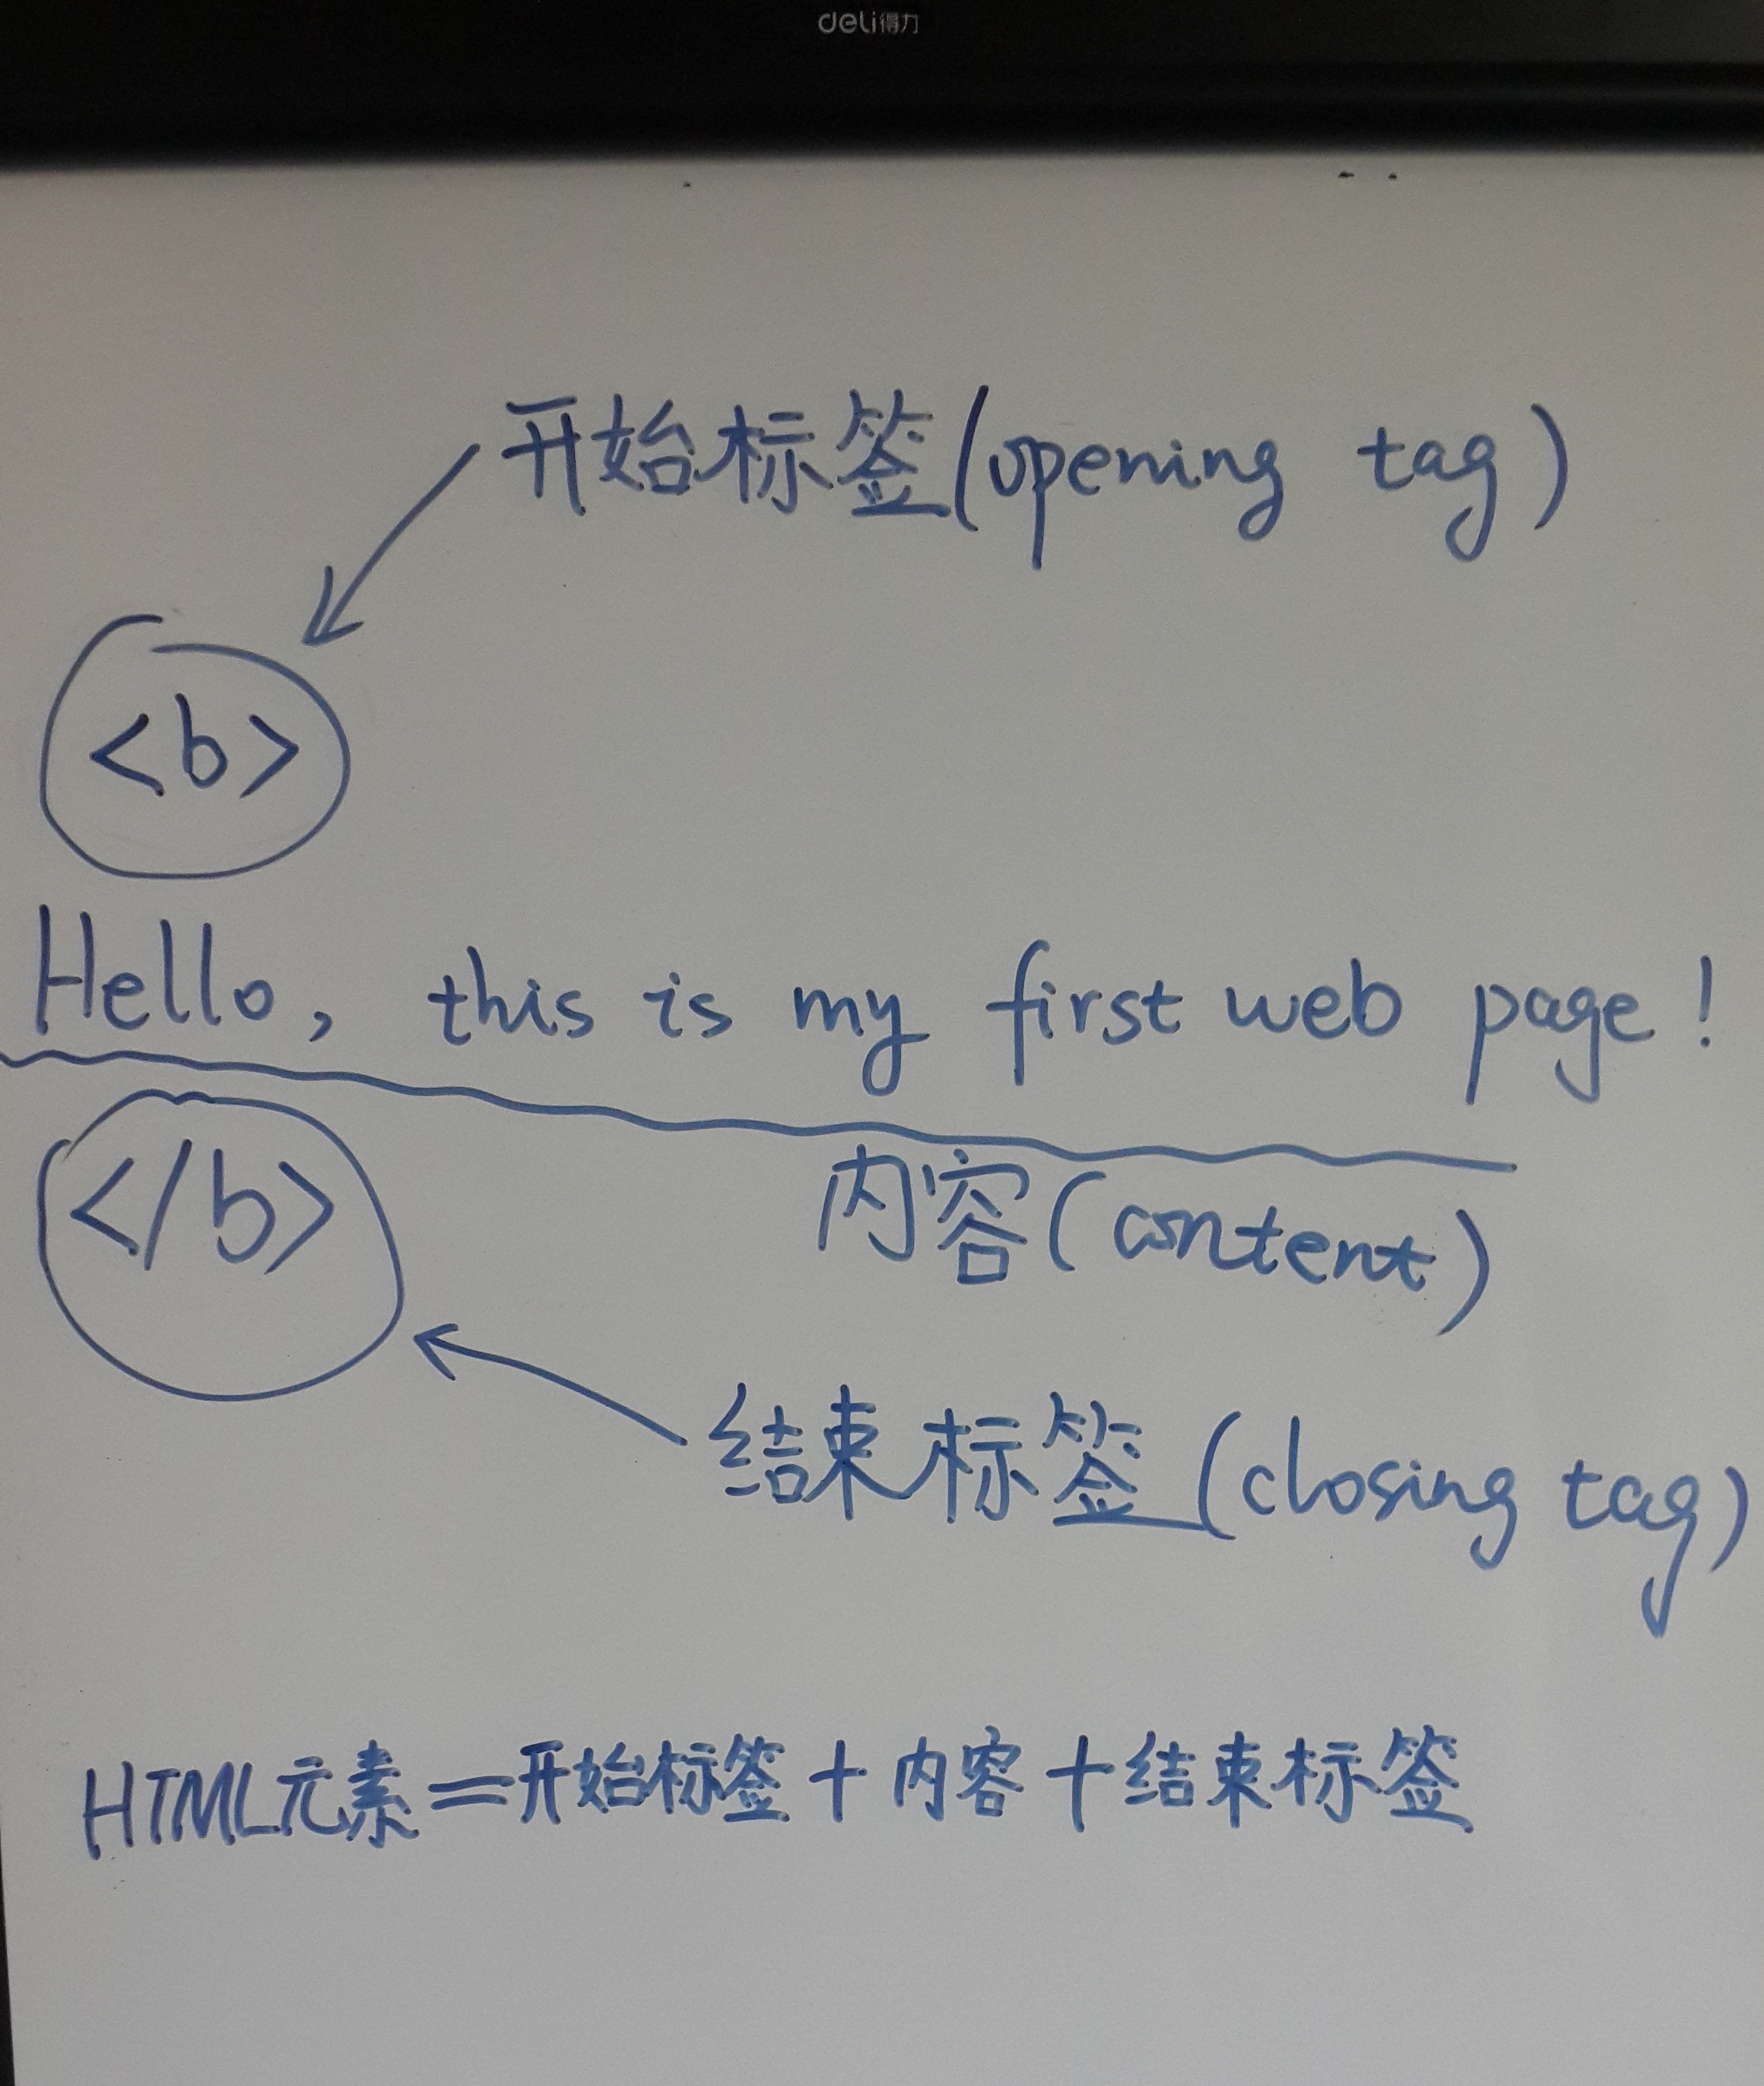 deli得力
开始标签(opening tag)
<b>
Hello, this is my first web page!
</b>
内容(content)
结束标签(closing tag)
HTML元素=开始标签+内容+结束标签